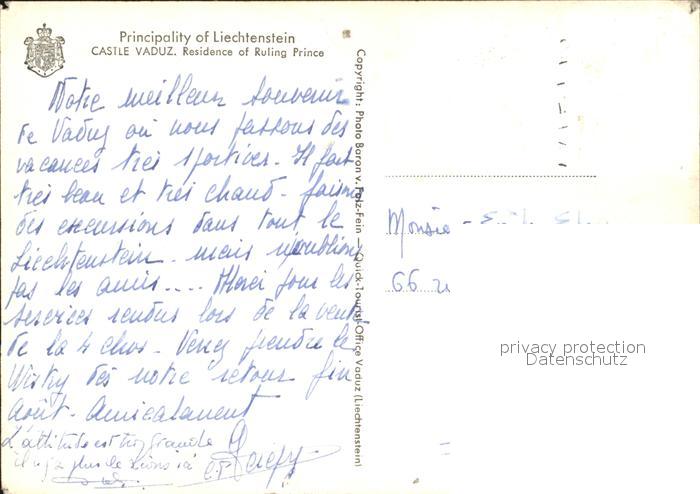 Principality of Liechtenstein
CASTLE VADUZ. Residence of Ruling Prince
Notre meilleur souvenir
de Vaduz où nous passons des
vacances très sportives. Il fait
très beau et très chaud - faisons
des excursions dans tout le
Liechtenstein - mais n'oublions
pas les amis.... Merci pour les
services rendus lors de la vente
de la 4 chos. Venez prendre le
Wisky dès notre retour fin
Août. Amicalement
L'altitude est trop grande
il n'y a plus de lions ici
Copyright: Photo Baron v. Falz-Fein — Quick-Tourist-Office Vaduz (Liechtenstein)
66
privacy protection
Datenschutz